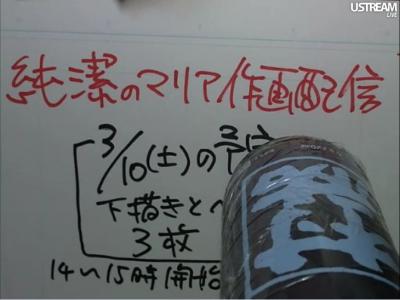 USTREAM
LIVE
純潔のマリア作画配信
3/10(土)の予定
下描きと
3枚
14〜15時開始